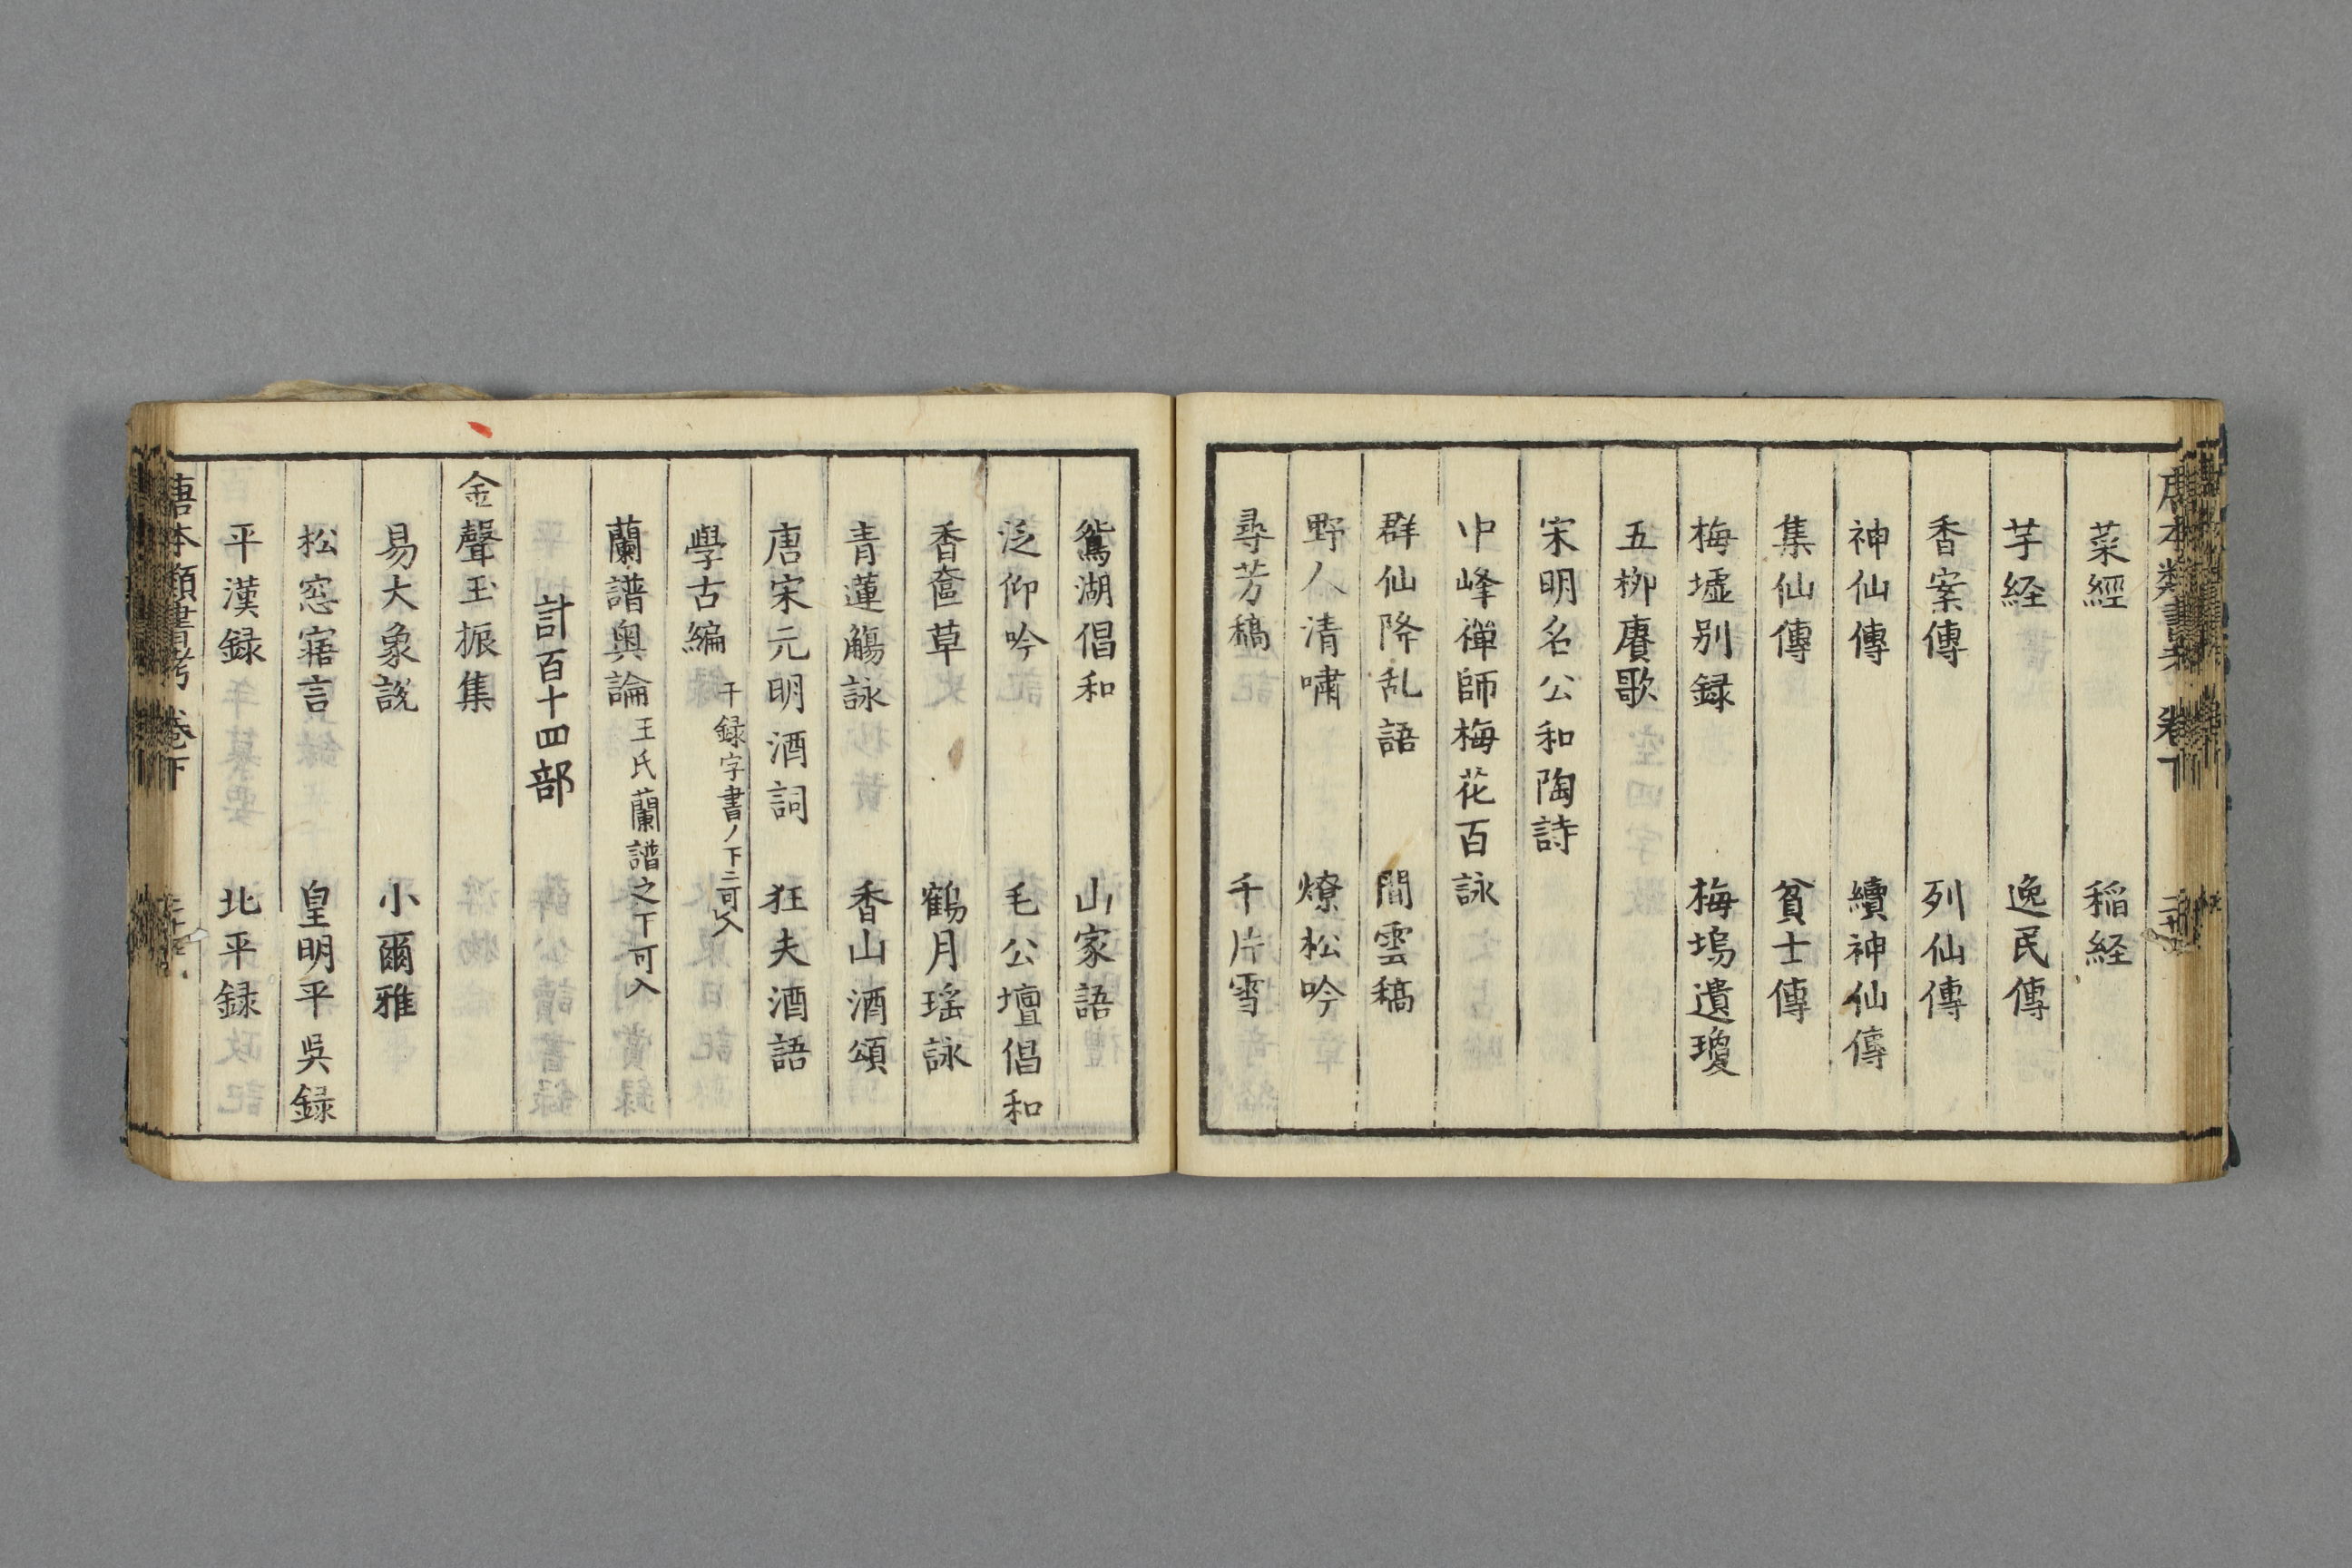 唐本類書考 卷下
菜經 稲経
芋経 逸民傳
香案傳 列仙傳
神仙傳 續神仙傳
集仙傳 貧士傳
梅墟別録 梅塢遺瓊
五柳賡歌
宋明名公和陶詩
中峰禪師梅花百詠
群仙降乱語 閒雲稿
野人清嘯 燎松吟
尋芳稿 千片雪
鴛湖倡和 山家語
泛仰吟 毛公壇倡和
香奩草 鶴月瑶詠
青蓮觴詠 香山酒頌
唐宋元明酒詞 狂夫酒語
學古編 干録字書ノ下ニ可入
蘭譜奥論 王氏蘭譜之下可入
計百十四部
金聲玉振集
易大象説 小爾雅
松窓寤言 皇明平吳録
平漢録 北平録
唐本類書考 卷下